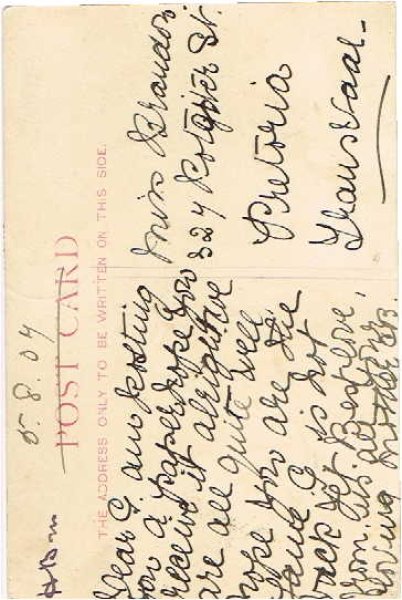 5.8.04
POST CARD
THE ADDRESS ONLY TO BE WRITTEN ON THIS SIDE.
Dear G. am posting
you a paper, hope you
receive it alright we
are all quite well
hope you are the
same G. is not
back yet.
from us all
loving Mother
Miss Brandon.
324 Potgieter St.
Pretoria
Transvaal-